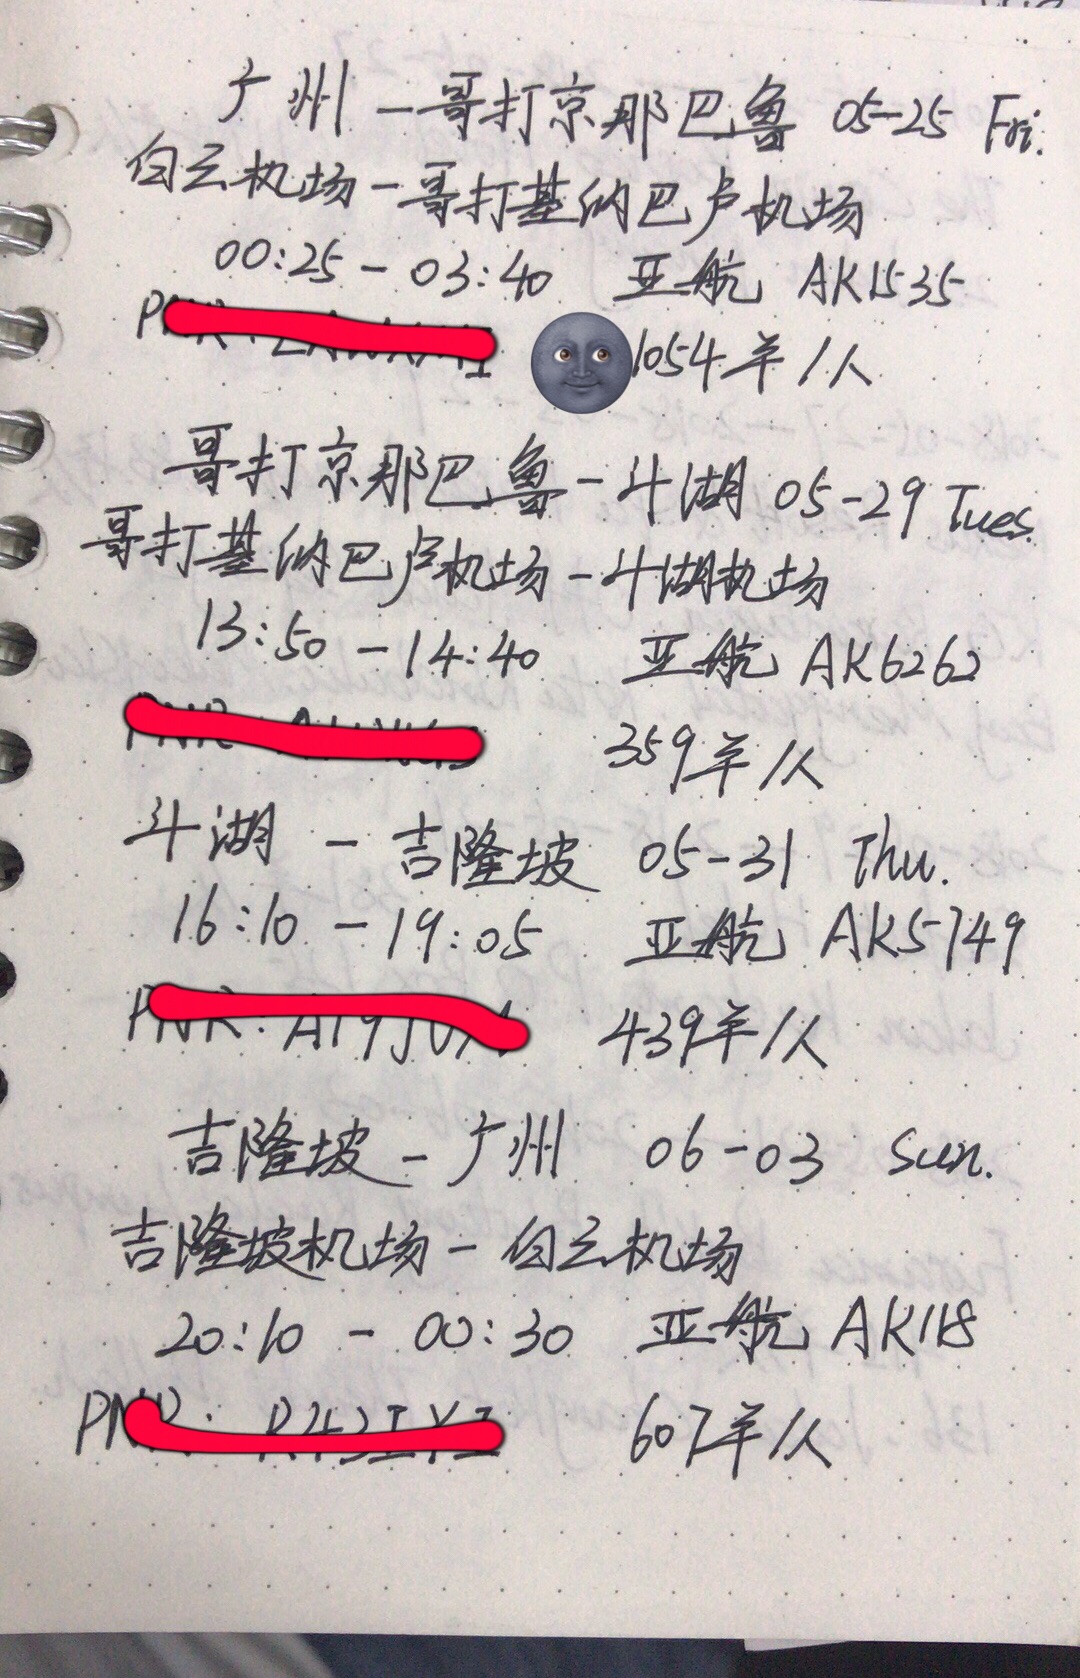 广州 — 哥打京那巴鲁 05-25 Fri.
白云机场 — 哥打基纳巴卢机场
00:25 - 03:40 亚航 AK1535
1054羊/人
哥打京那巴鲁 - 斗湖 05-29 Tues.
哥打基纳巴卢机场 - 斗湖机场
13:50 - 14:40 亚航 AK6262
359羊/人
斗湖 - 吉隆坡 05-31 Thu.
16:10 - 19:05 亚航 AK5749
PNR:
439羊/人
吉隆坡 - 广州 06-03 Sun.
吉隆坡机场 - 白云机场
20:10 - 00:30 亚航 AK118
607羊/人